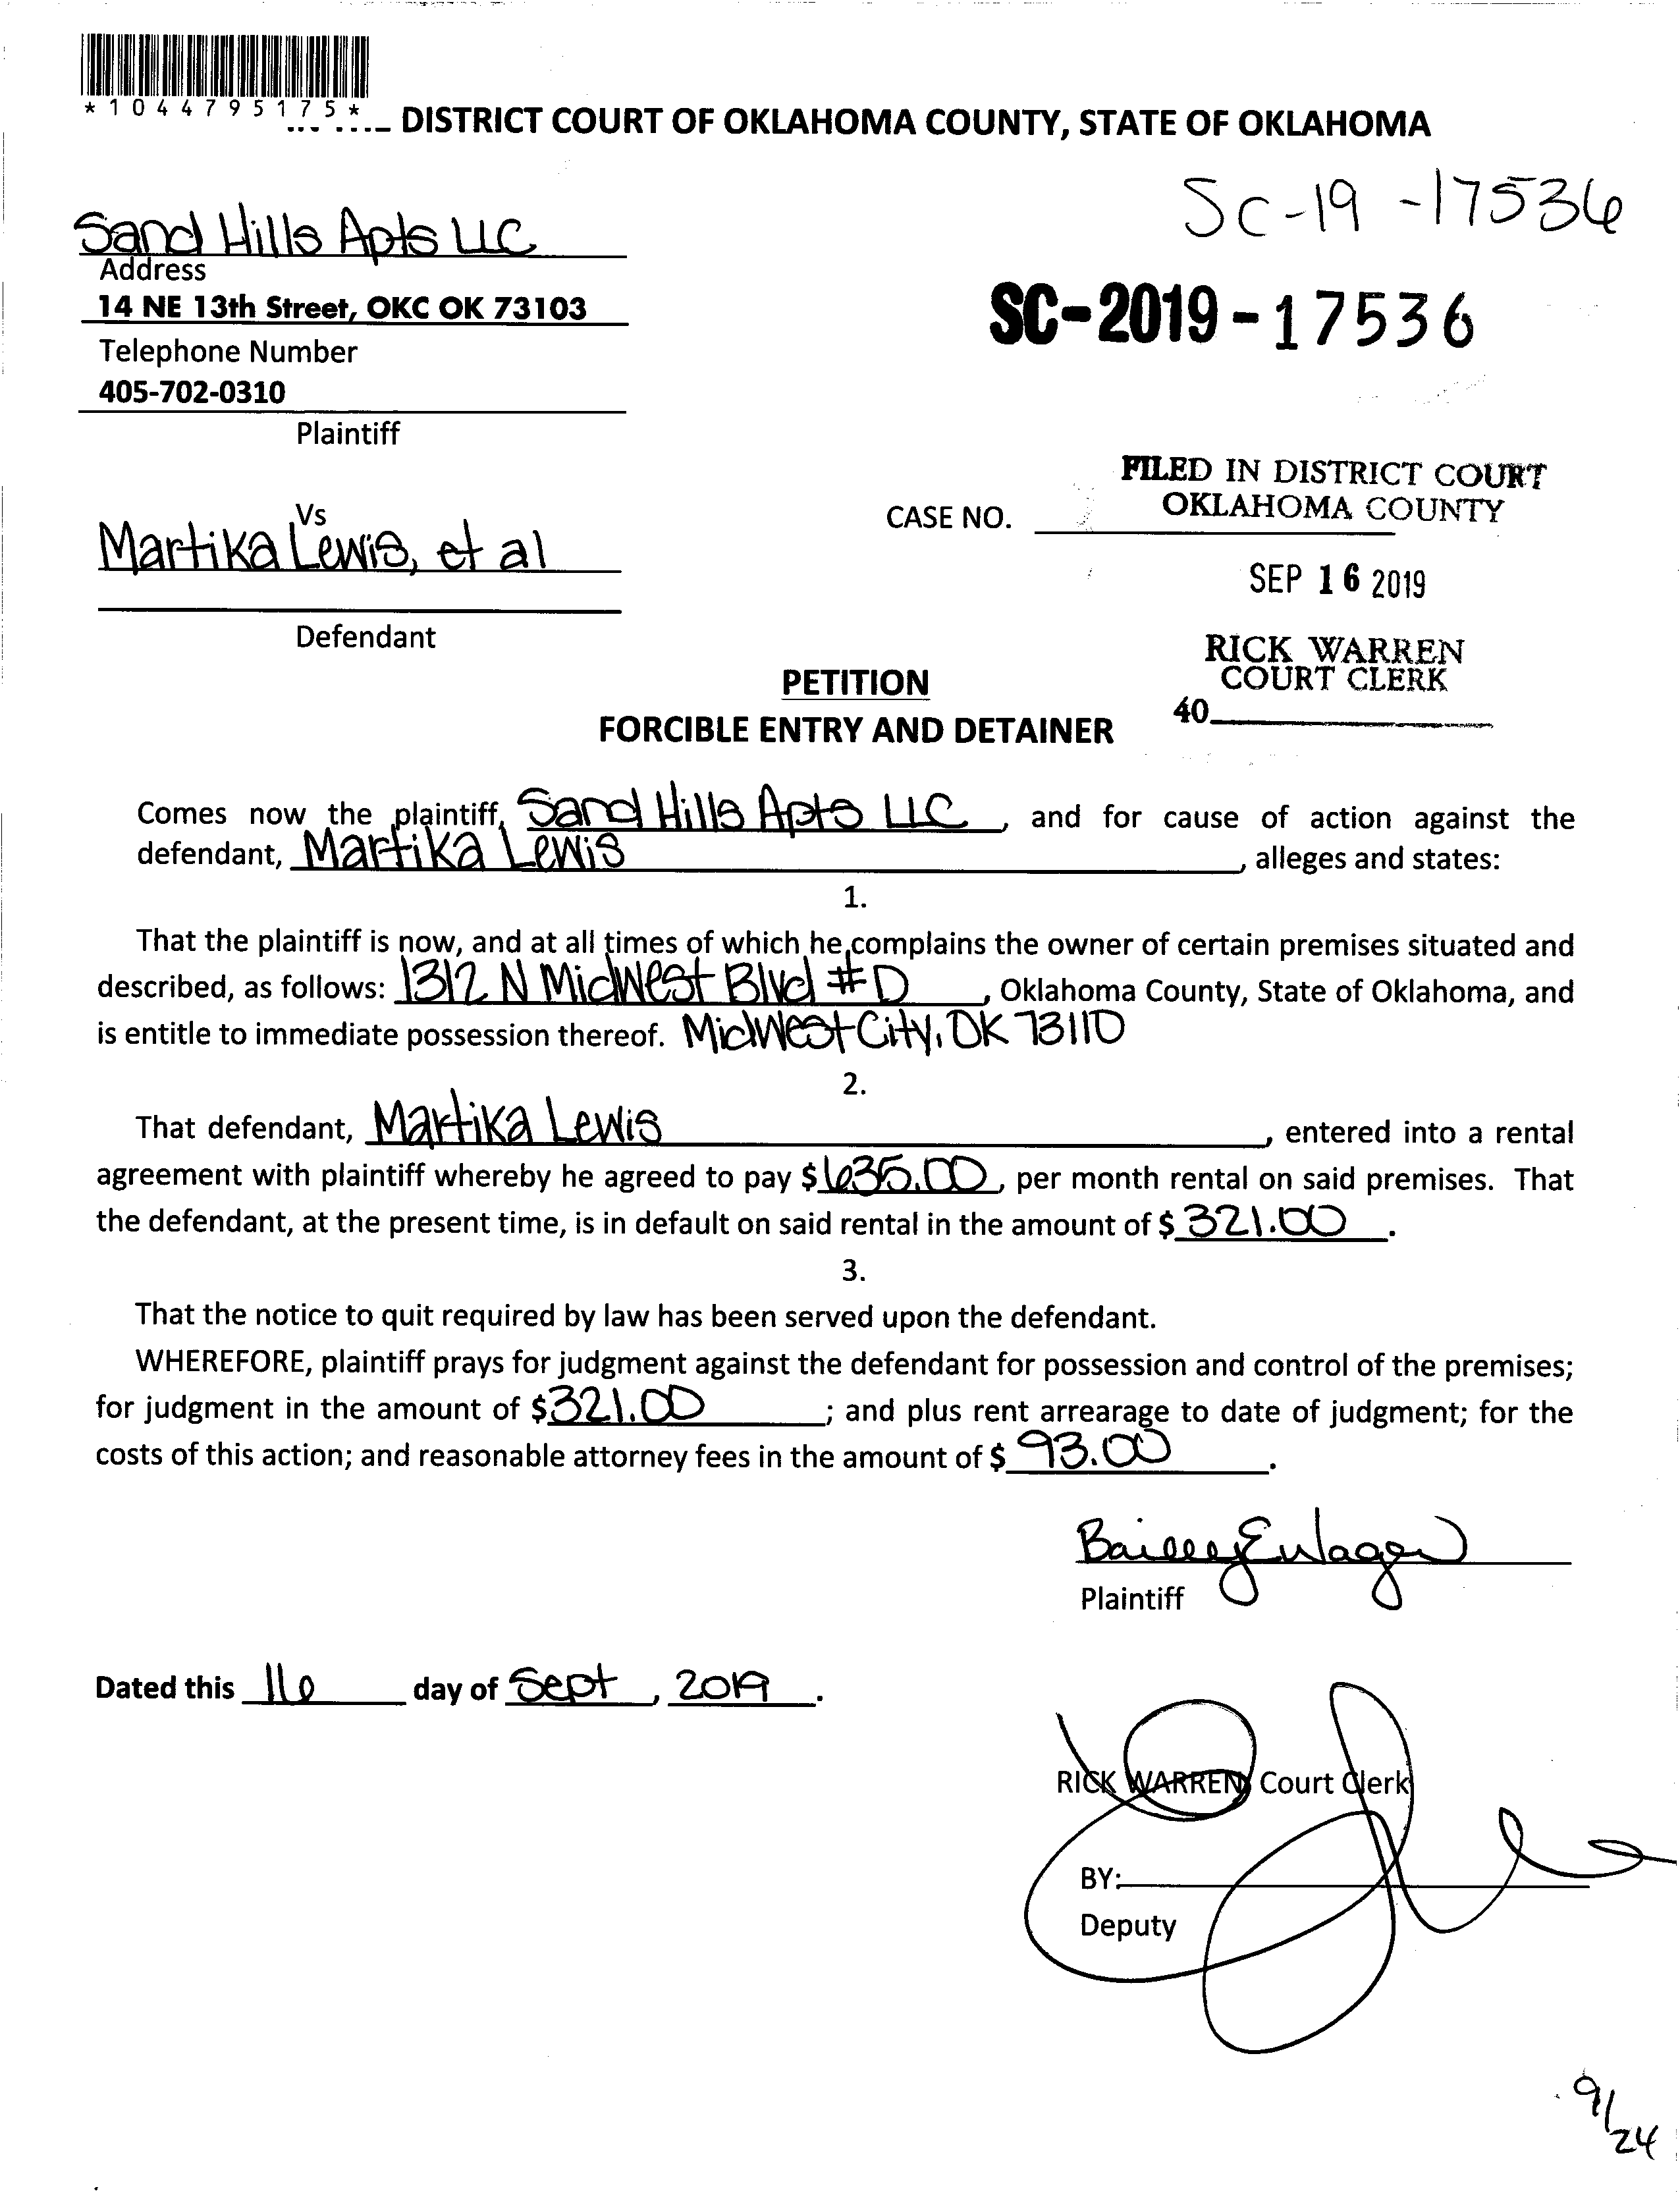 *1044795175*
DISTRICT COURT OF OKLAHOMA COUNTY, STATE OF OKLAHOMA
SC-19-17536
Sand Hills Apts LLC
Address
14 NE 13th Street, OKC OK 73103
SC-2019-17536
Telephone Number
405-702-0310
Plaintiff
FILED IN DISTRICT COURT
OKLAHOMA COUNTY
Vs
CASE NO.
Martika Lewis, et al
SEP 16 2019
Defendant
RICK WARREN
COURT CLERK
40
PETITION
FORCIBLE ENTRY AND DETAINER
Comes now the plaintiff, Sand Hills Apts LLC, and for cause of action against the
defendant, Martika Lewis, alleges and states:
1.
That the plaintiff is now, and at all times of which he complains the owner of certain premises situated and
described, as follows: 1312 N Midwest Blvd #D, Oklahoma County, State of Oklahoma, and
is entitle to immediate possession thereof. Midwest City, OK 73110
2.
That defendant, Martika Lewis, entered into a rental
agreement with plaintiff whereby he agreed to pay $635.00, per month rental on said premises. That
the defendant, at the present time, is in default on said rental in the amount of $321.00.
3.
That the notice to quit required by law has been served upon the defendant.
WHEREFORE, plaintiff prays for judgment against the defendant for possession and control of the premises;
for judgment in the amount of $321.00; and plus rent arrearage to date of judgment; for the
costs of this action; and reasonable attorney fees in the amount of $93.00.
Plaintiff
Dated this 16 day of Sept, 2019.
RICK WARREN, Court Clerk
BY:
Deputy
9/24